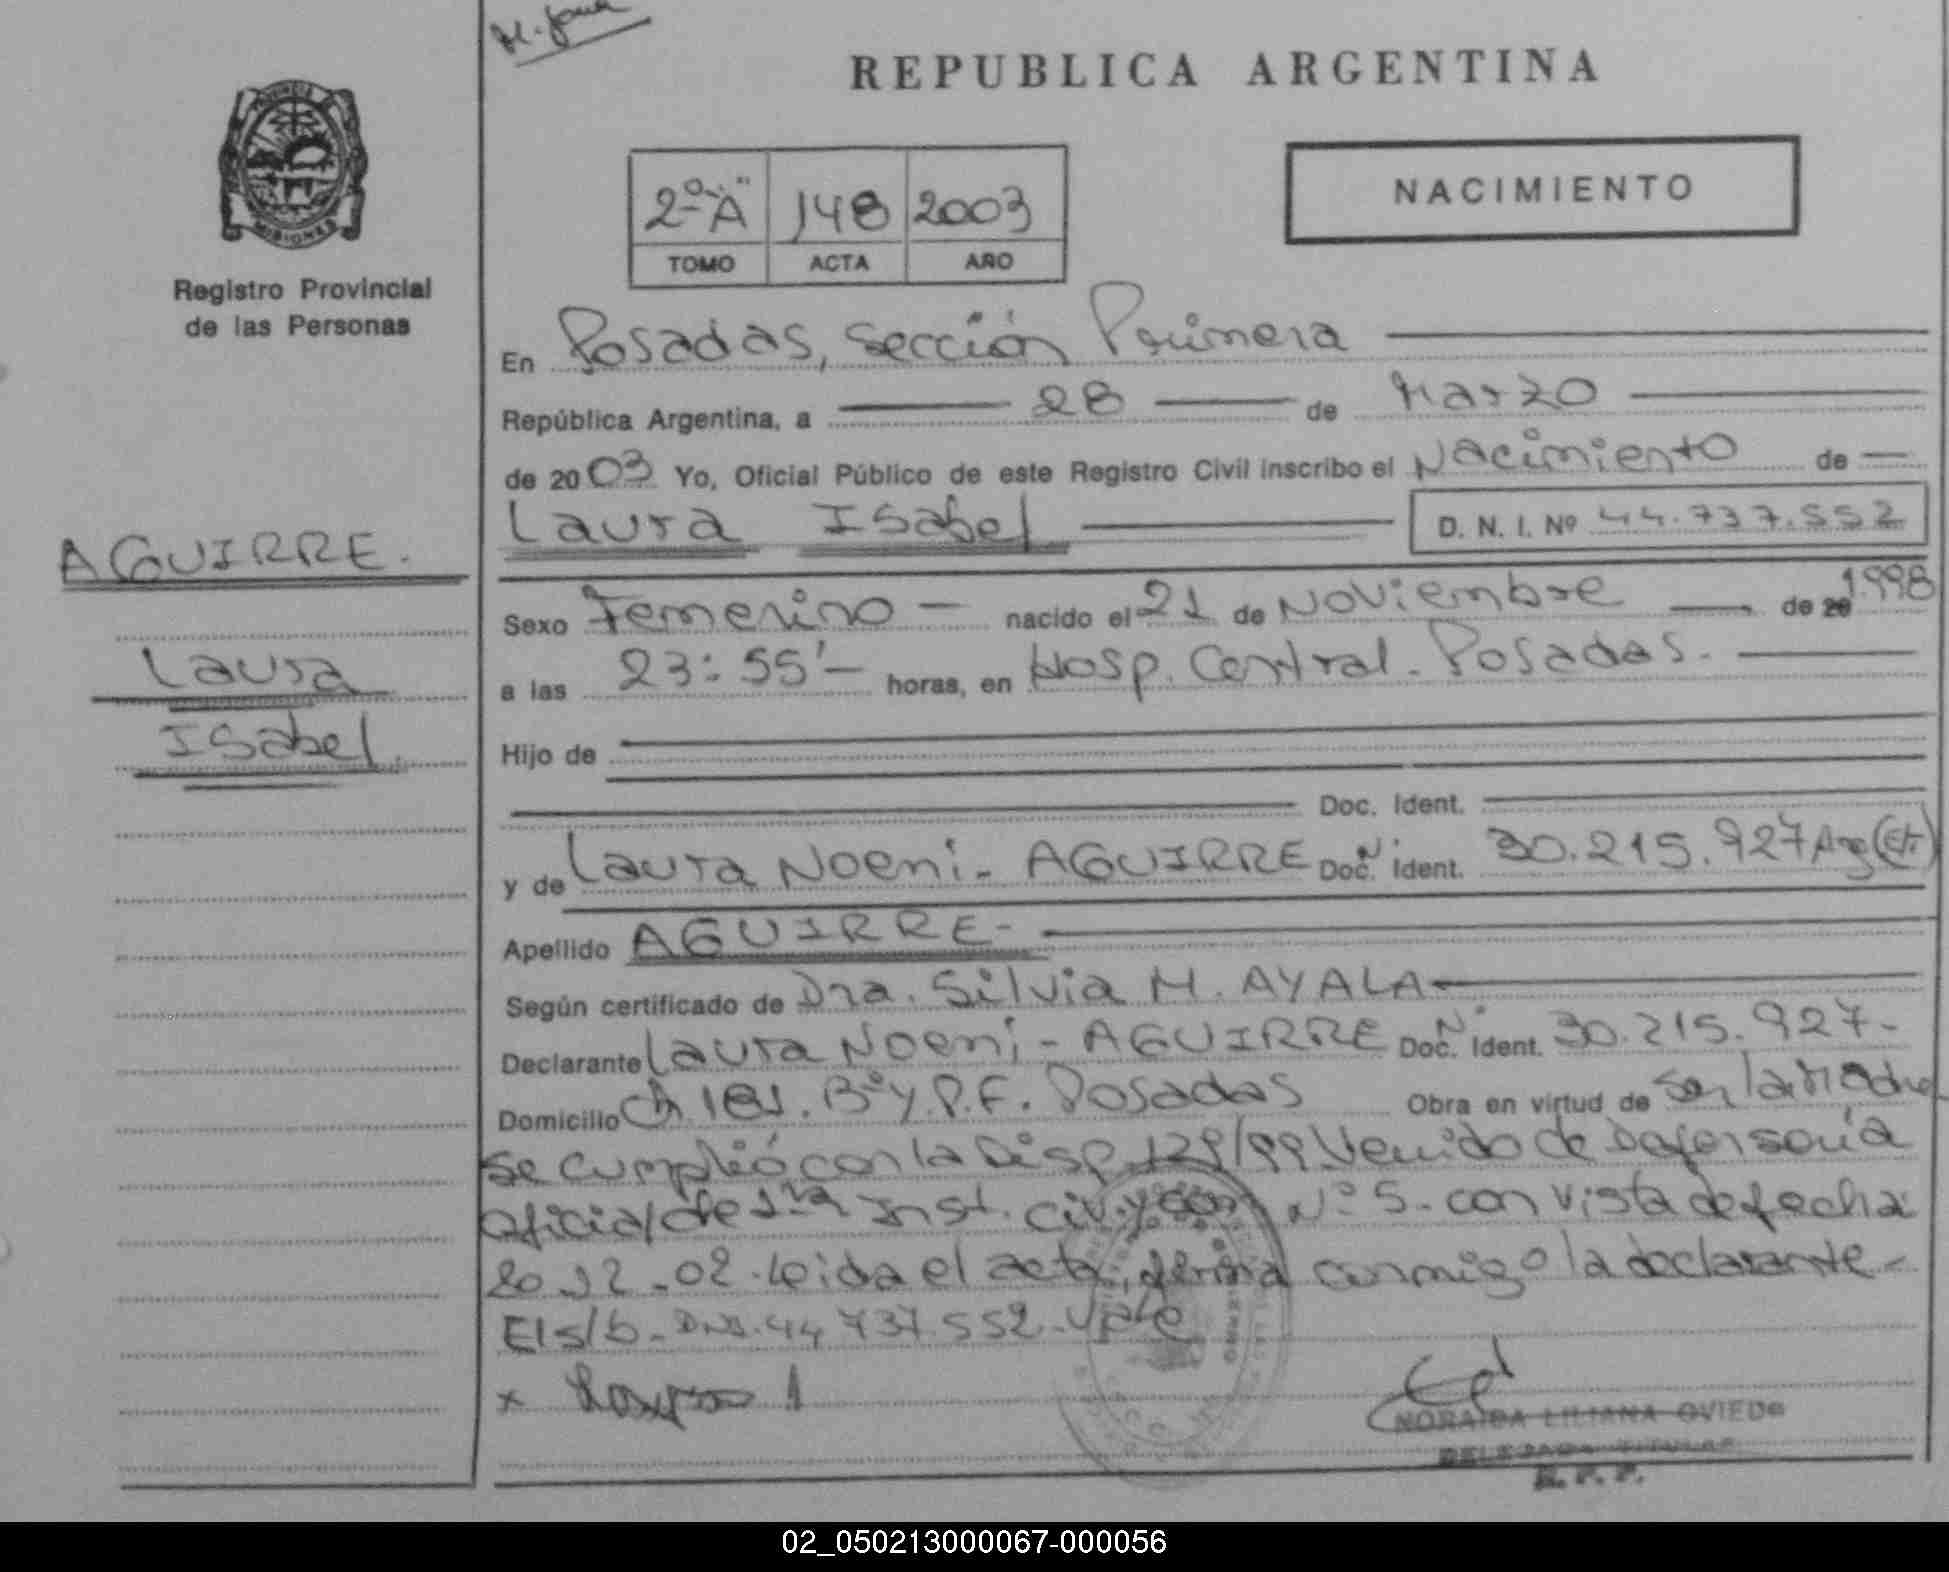 REPUBLICA ARGENTINA
PROVINCIA
MISIONES
Registro Provincial
de las Personas
2º "A" 148 2003
TOMO ACTA AÑO
NACIMIENTO
En Posadas, Sección Primera
República Argentina, a 28 de Marzo
de 2003 Yo, Oficial Público de este Registro Civil inscribo el Nacimiento de
Laura Isabel D. N. I. Nº 44.737.552
AGUIRRE.
Laura
Isabel.
Sexo Femenino - nacido el 21 de Noviembre de 20 1998
a las 23:55'- horas, en Hosp. Central. Posadas.
Hijo de
Doc. Ident.
y de Laura Noemi- AGUIRRE Doc. Ident. 30.215.927 Arg
Apellido AGUIRRE-
Según certificado de Dra. Silvia M. AYALA
Declarante Laura Noemi- AGUIRRE Doc. Ident. 30.215.927-
Domicilio Ch 181. Bº Y.P.F. Posadas Obra en virtud de ser la Madre
se cumplió con la Disp. 129/99 Venido de Defensoría
oficial de 1ra Inst. civ. y com Nº 5. con vista de fecha
20.12-02. Leida el acta, firma conmigo la declarante-
E/s/b- DNI. 44 737.552. Vale
x
NORAIDA LILIANA OVIEDO
DELEGADA TITULAR
R. P. P.
02_050213000067-000056